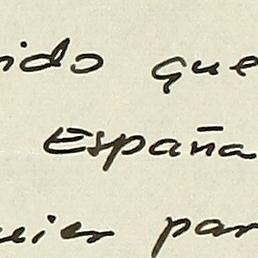 ido que
España
uier par